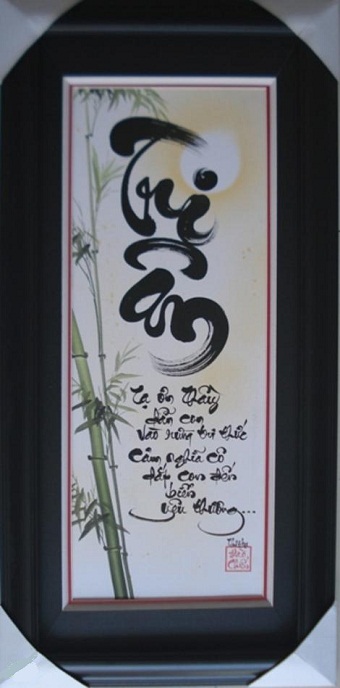 Tri
Ân
Tạ ơn Thầy
dẫn con
vào rừng tri thức
Cảm nghĩa cô
dắt con đến
biển
yêu thương...